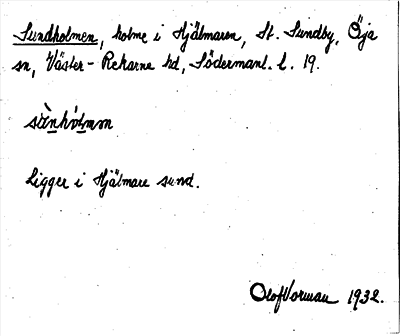 Sundholmen, holme i Hjälmaren, St. Sundby, Öja
sn, Väster-Rekarne hd, Södermanl. l. 19.
sùnhólmən
Ligger i Hjälmare sund.
Olof Vorman 1932.